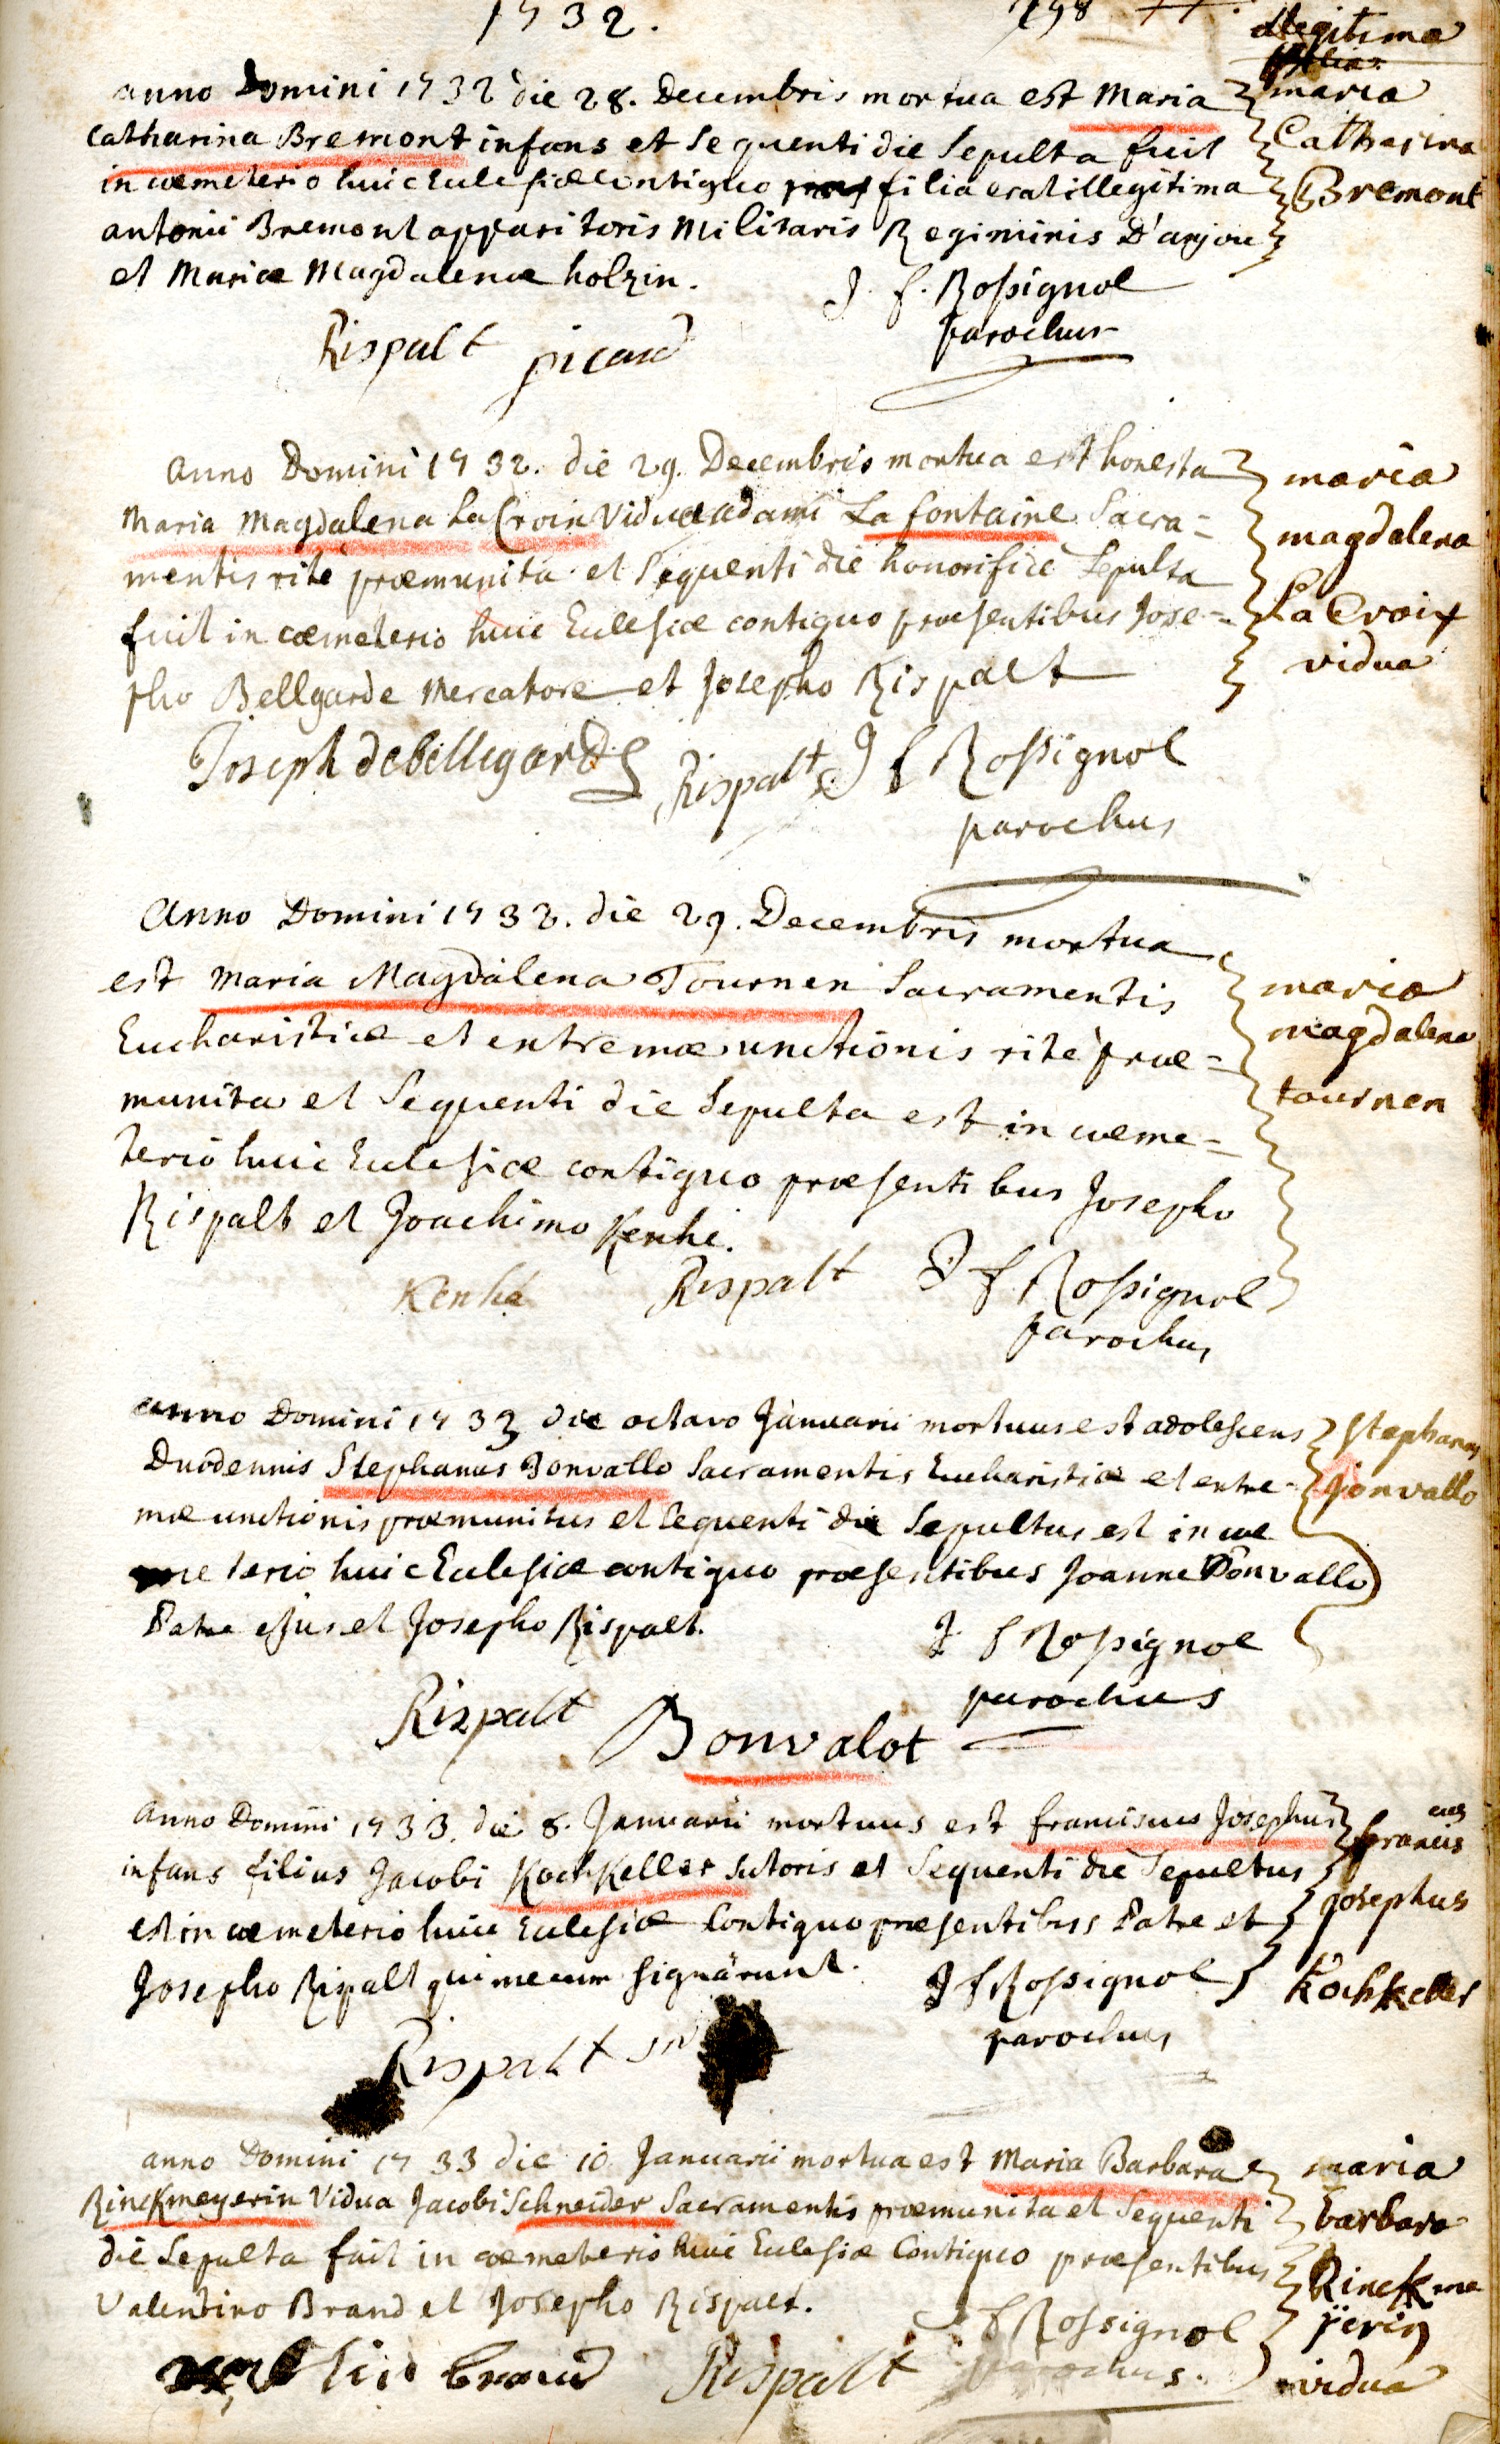 1732.
198
illegitima
anno Domini 1732 die 28. Decembris mortua est Maria
Catharina Bremont infans et sequenti die sepulta fuit
in coemeterio huic Eclesiæ contiguo filia erat illegitima
antonii Bremont apparitoris Militaris Regiminis D'anjou
et Mariæ Magdalenæ holzin.
maria
Catharina
Bremont
J. f. Rossignol
parochus
Rispalt picard
Anno Domini 1732. die 29. Decembris mortua est honesta
Maria Magdalena La Croix Vidua adami La fontaine Sacra=
mentis rite præmunita et sequenti die honorifice sepulta
fuit in coemeterio huic Eclesiæ contiguo præsentibus Jose=
pho Bellgarde Mercatore et Josepho Rispalt
maria
magdalena
La Croix
vidua
Joseph debellegarde Rispalt J f Rossignol
parochus
Anno Domini 1732. die 29. Decembris mortua
est Maria Magdalena Tournen Sacramentis
Eucharistiæ et extremæ unctionis rite præ=
munita et sequenti die sepulta est in coeme=
terio huic Eclesiæ contiguo præsentibus Josepho
Rispalt et Joachimo Kenhe.
maria
magdalena
tournen
Kenhe Rispalt J f Rossignol
parochus
anno Domini 1733 die octavo Januarii mortuus est adolescens
Duodennis Stephanus Bonvallo Sacramentis Eucharistiæ et extre=
mæ unctionis præmunitus et sequenti die sepultus est in coe
meterio huic Eclesiæ contiguo præsentibus Joanne Bonvallo
Patre ejus et Josepho Rispalt.
Stephanus
bonvallo
J f Rossignol
parochus
Rispalt Bonvalot
Anno Domini 1733. die 8. Januarii mortuus est franciscus Josephus
infans filius Jacobi Koch Keller sutoris et sequenti die sepultus
est in coemeterio huic Eclesiæ Contiguo præsentibus Patre et
Josepho Ripalt qui mecum signarunt.
francis
cus
josephus
Kochkeller
J f Rossignol
parochus
Rispalt
anno Domini 1733 die 10 Januarii mortua est Maria Barbara
Rinckmeyerin Vidua Jacobi Schneider Sacramentis præmunita et sequenti
die sepulta fuit in coemeterio huic Eclesiæ Contiguo præsentibus
Valentino Brand et Josepho Rispalt.
maria
barbara
Rinckme
ÿerin
vidua
J f Rossignol
parochus.
brand Rispalt